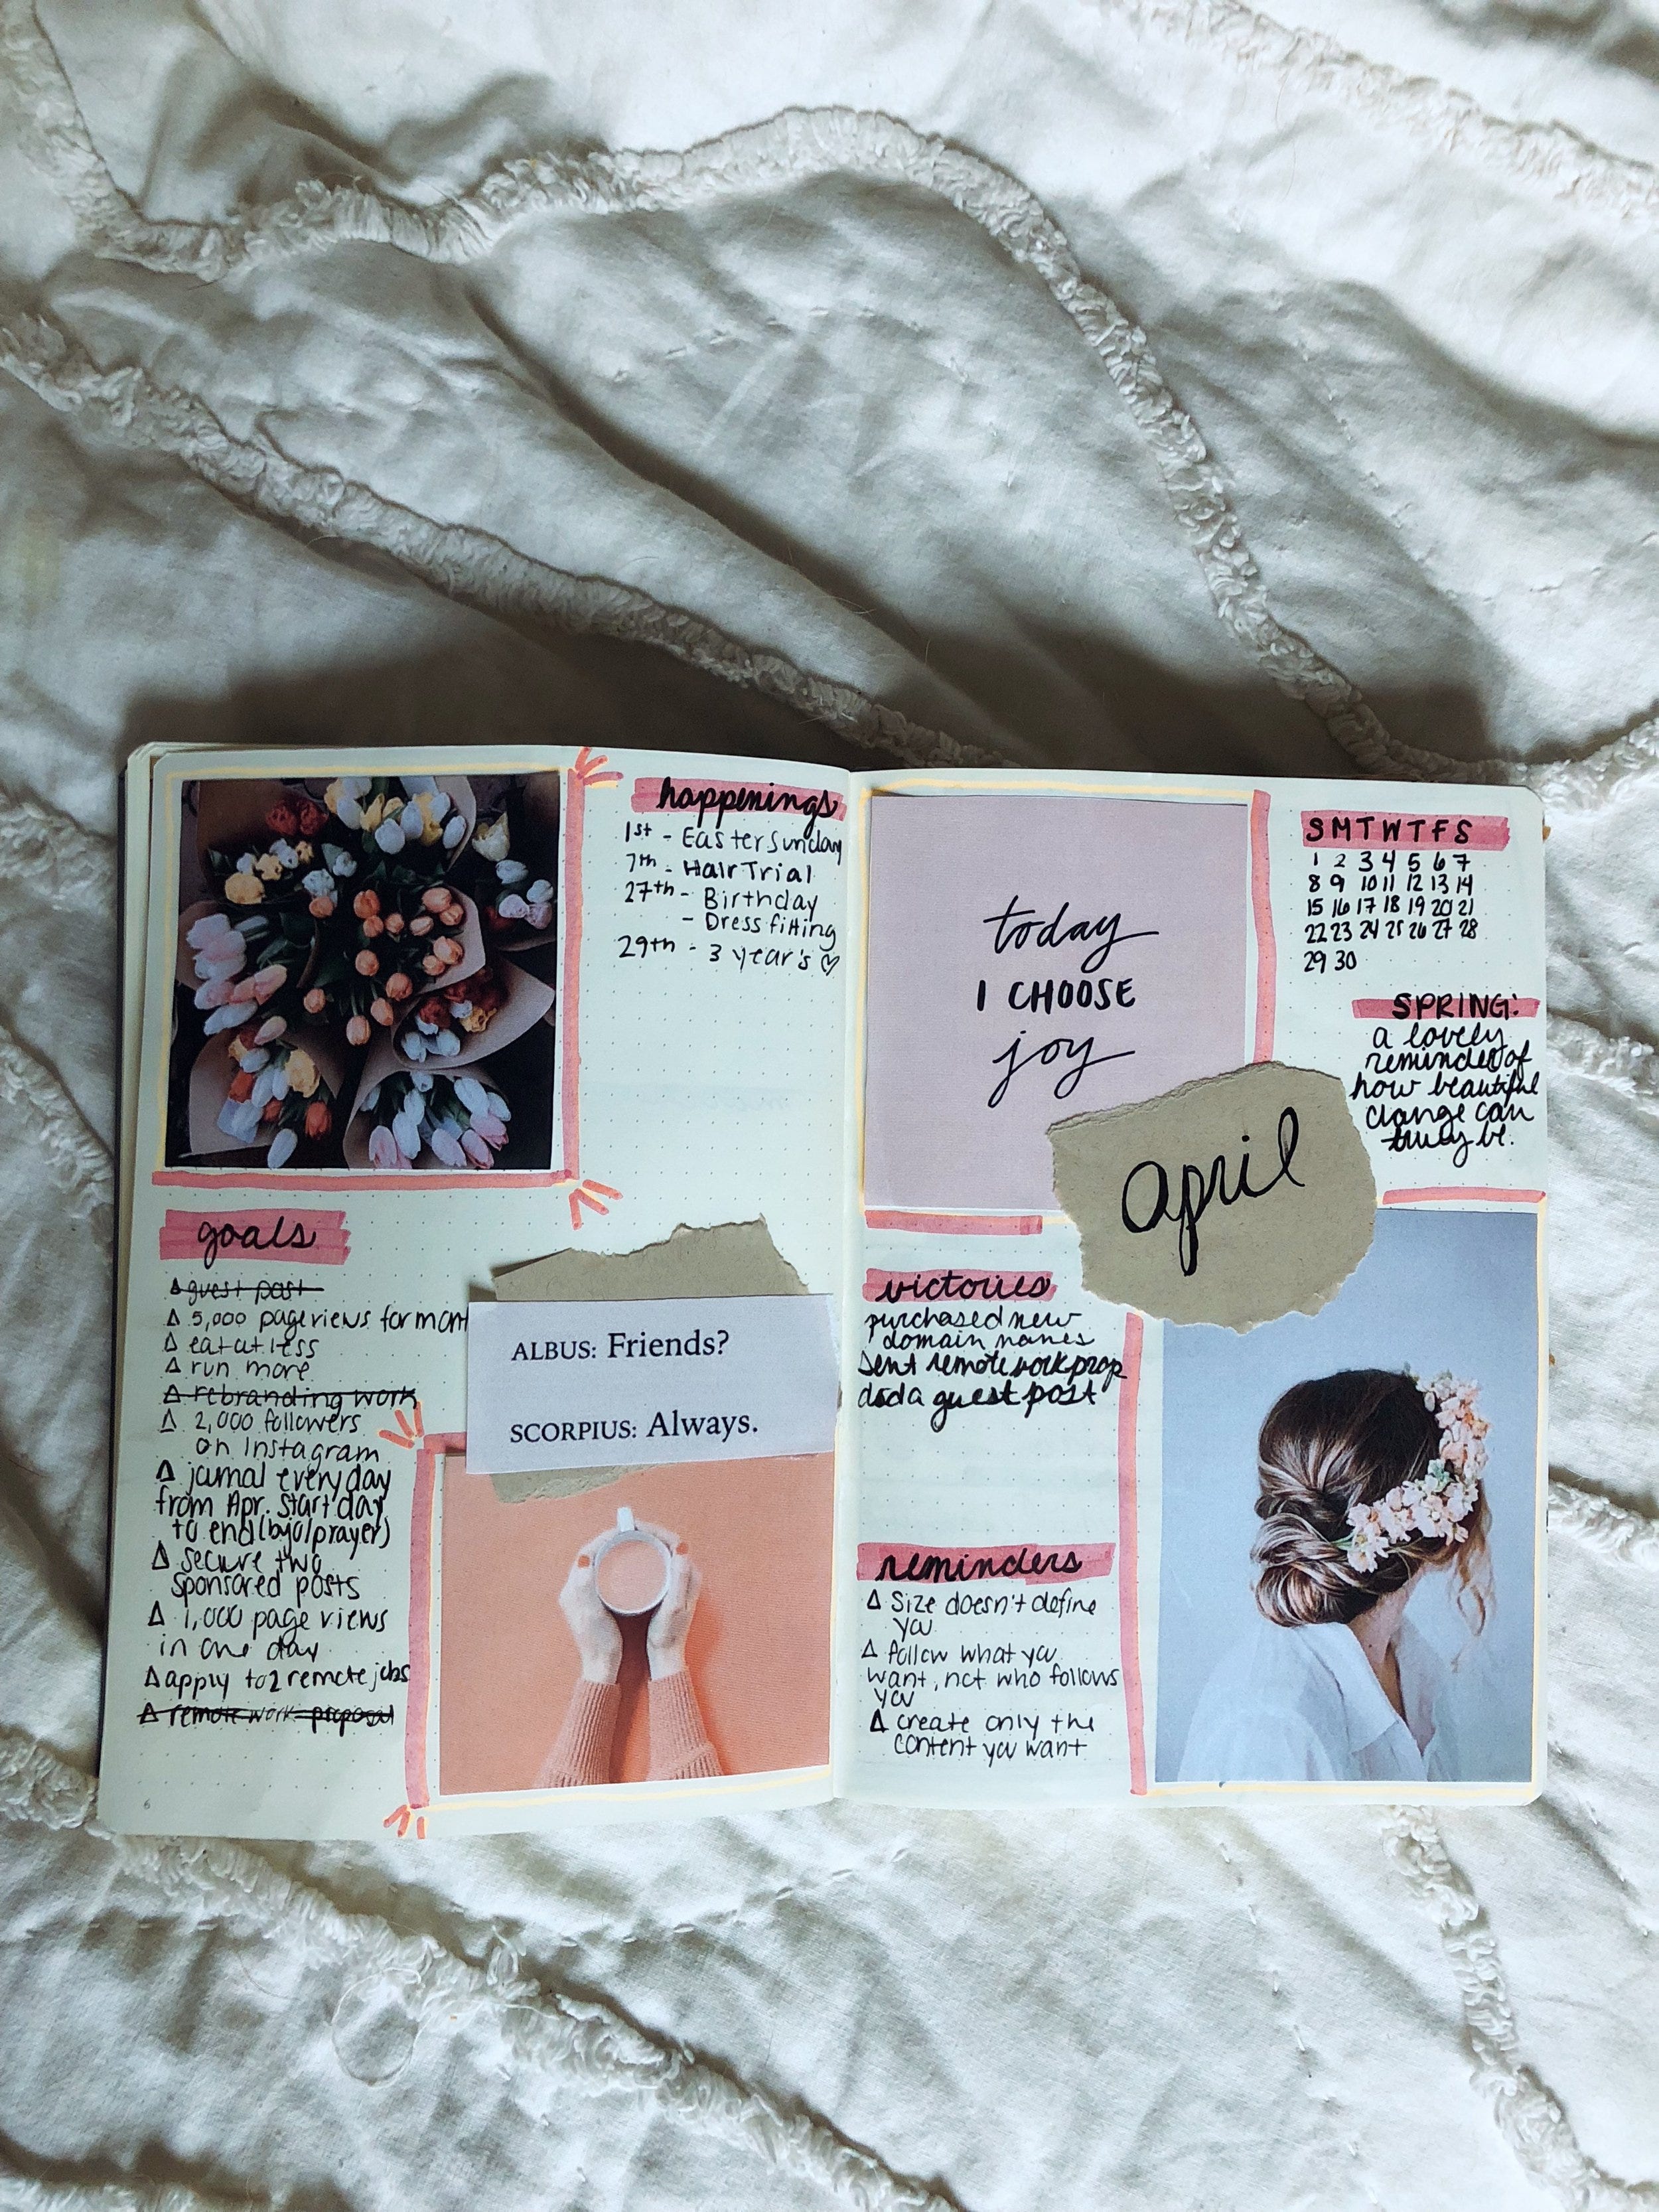 happenings
1st - Easter Sunday
7th - Hair Trial
27th - Birthday
- Dress fitting
29th - 3 year's ♡
goals
Δ guest post
Δ 5,000 pageviews for mont
Δ eat at less
Δ run more
Δ rebranding work
Δ 2,000 followers
on Instagram
Δ journal everyday
from Apr. start day
to end (bujo/prayer)
Δ secure two
sponsored posts
Δ 1,000 page views
in one day
Δ apply to 2 remote jobs
Δ remote work proposal
ALBUS: Friends?
SCORPIUS: Always.
6
today
I CHOOSE
joy
april
S M T W T F S
1 2 3 4 5 6 7
8 9 10 11 12 13 14
15 16 17 18 19 20 21
22 23 24 25 26 27 28
29 30
SPRING:
a lovely
reminder of
how beautiful
change can
truly be.
victories
purchased new
domain names
sent remote work prop
did a guest post
reminders
Δ Size doesn't define
you
Δ follow what you
want, not who follows
you
Δ create only the
content you want